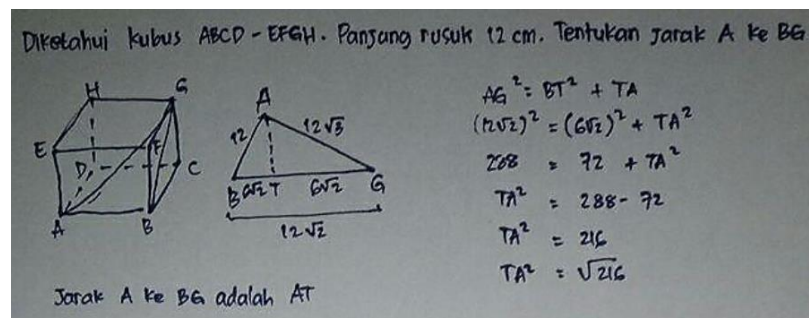 Diketahui kubus ABCD - EFGH. Panjang rusuk 12 cm. Tentukan Jarak A ke BG
H
G
E
F
D
C
A
B
A
12
12√3
B
6√2
T
6√2
G
12√2
AG² = BT² + TA
(12√2)² = (6√2)² + TA²
288 = 72 + TA²
TA² = 288 - 72
TA² = 216
TA² = √216
Jarak A ke BG adalah AT